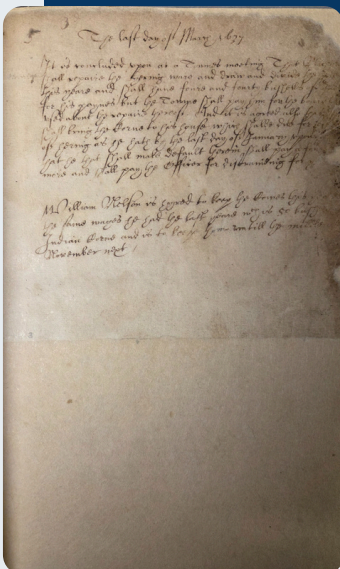 The last day of March 1637
It is concluded upon at a Townes meeting That
shall repaire the hering ware and draw and deliver the
this yeare and shall have foure and fourty bushells of
for his paynes but the Towne shall pay him for the
used about the repaire thereof And it is agreed all
shall bring the Corne to his house
of hering as he hath by the last day of January
that he that shall make default herein shall pay
more and shall pay the Officer for distreineing for
William Nelson is agreed to keep the Cowes this
the same wages he had the last yeare wch is 50 bush
Indian Corne and is to keepe them untill the
November next